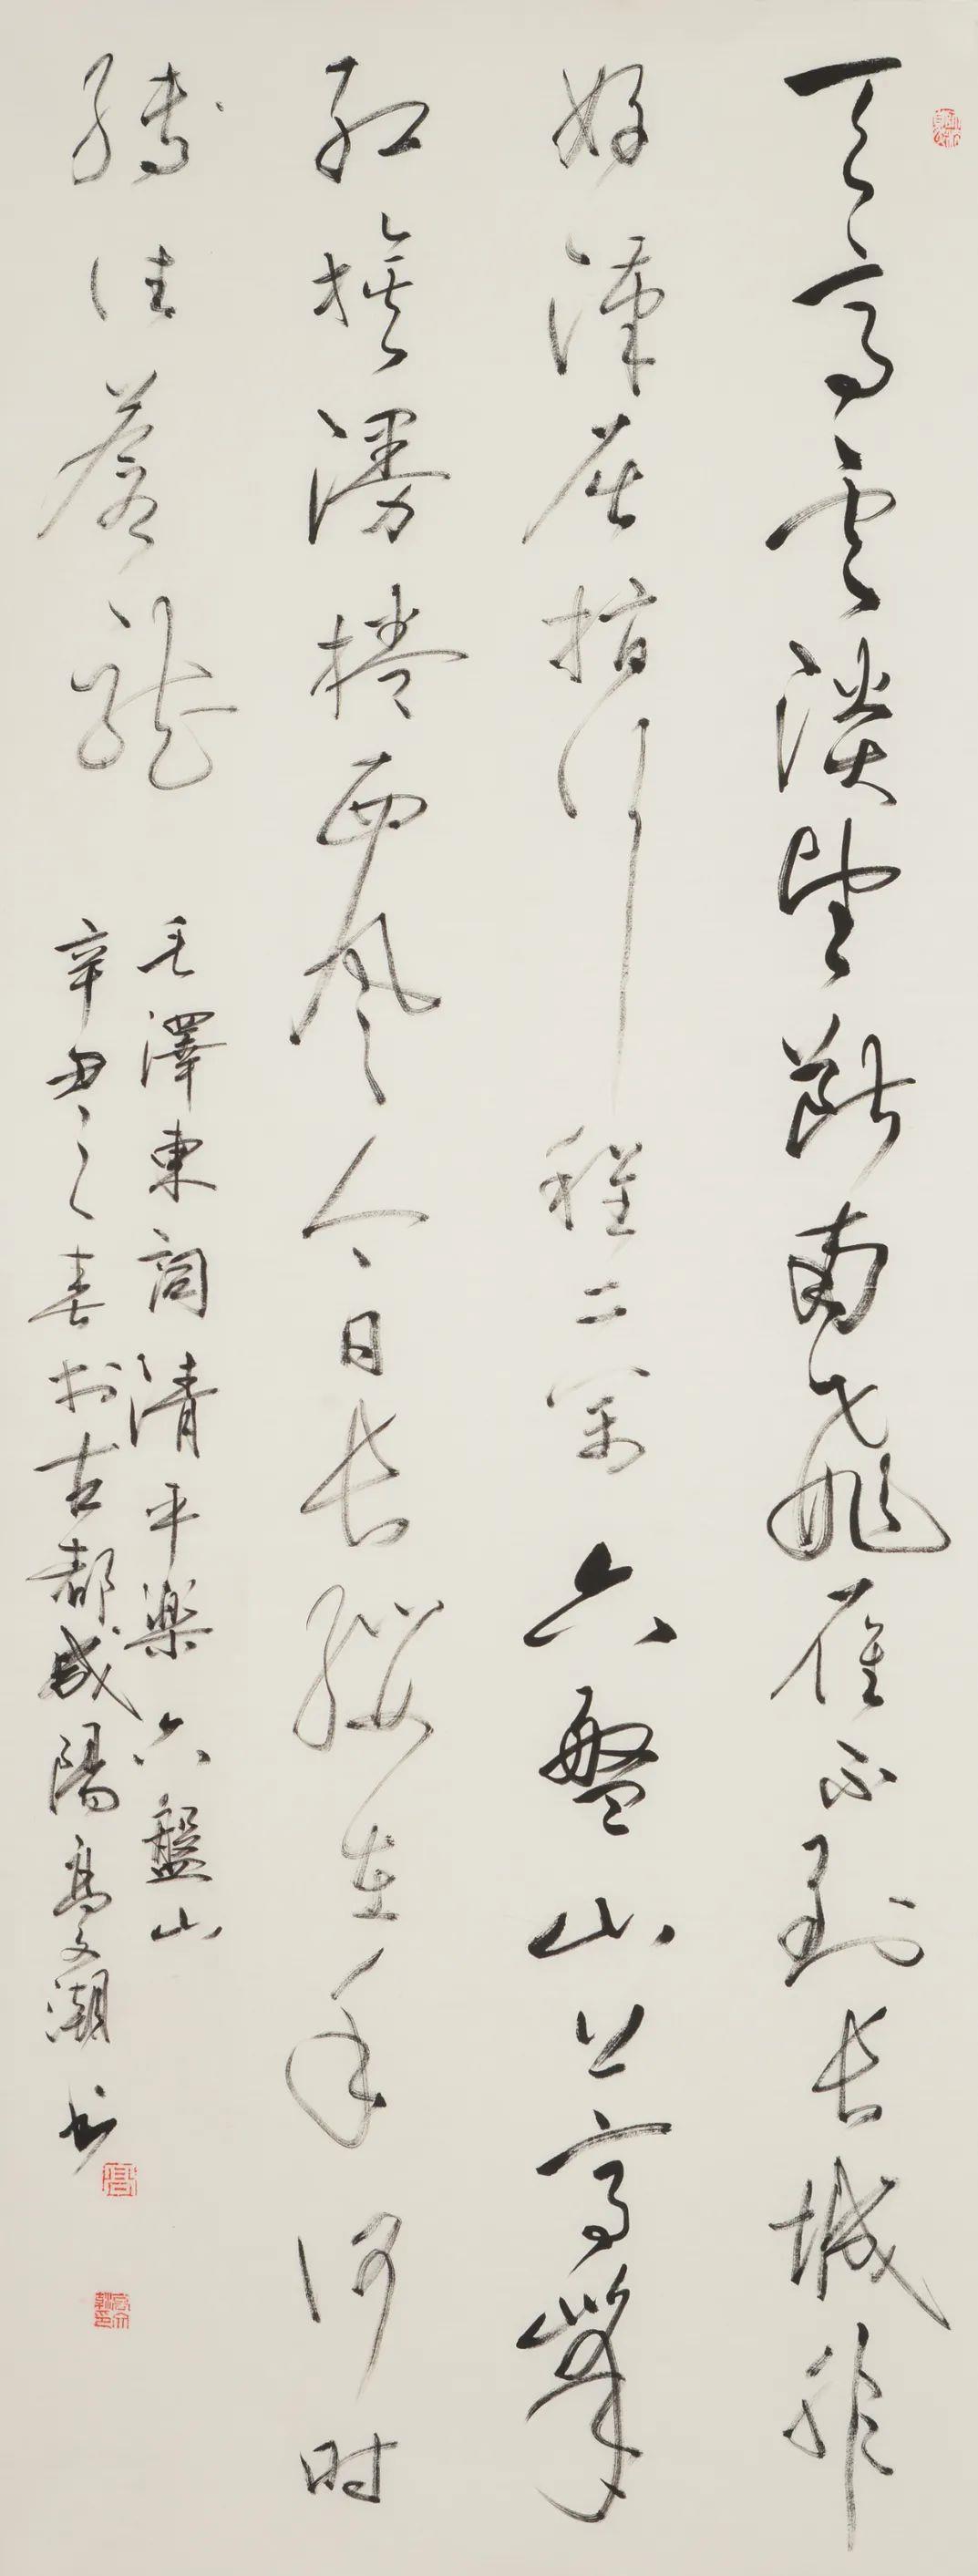 天高雲淡望斷南飛雁不到長城非
好漢屈指行程二萬六盤山上高峯
紅旗漫捲西風今日長纓在手何时
縛住蒼龍
毛澤東詞清平樂六盤山
辛丑之春於古都咸陽高文潮書